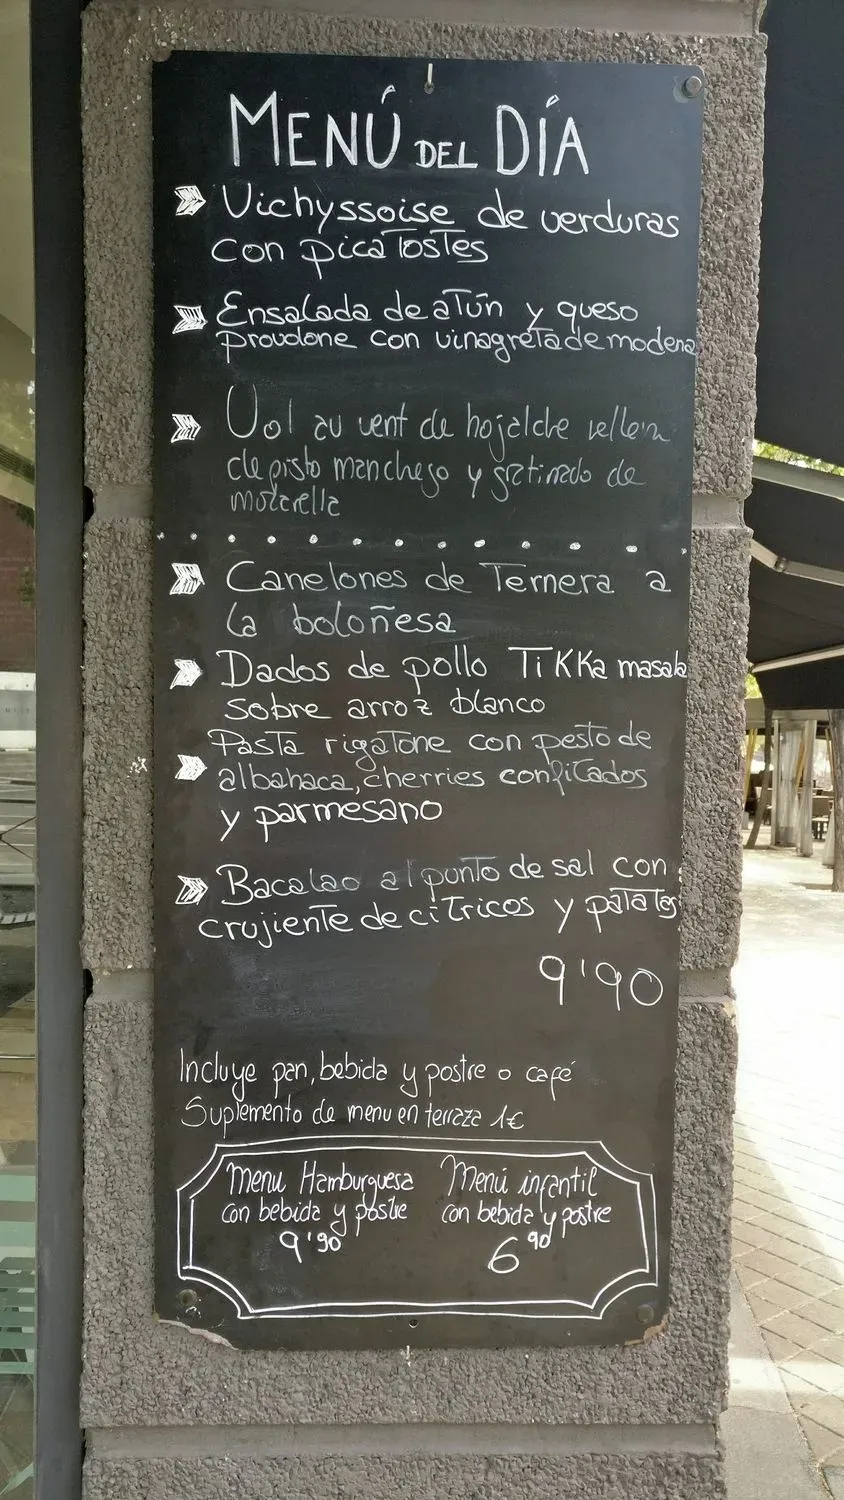 MENÚ DEL DÍA
Vichyssoise de verduras
con picatostes
Ensalada de atún y queso
provolone con vinagreta de modena
Vol au vent de hojaldre rellena
de pisto manchego y gratinado de
mozarella
Canelones de Ternera a
la boloñesa
Dados de pollo TiKKa masala
sobre arroz blanco
Pasta rigatone con pesto de
albahaca, cherries confitados
y parmesano
Bacalao al punto de sal con
crujiente de cítricos y patatas
9'90
Incluye pan, bebida y postre o café
Suplemento de menu en terraza 1€
Menu Hamburguesa
con bebida y postre
9'90
Menú infantil
con bebida y postre
6'90